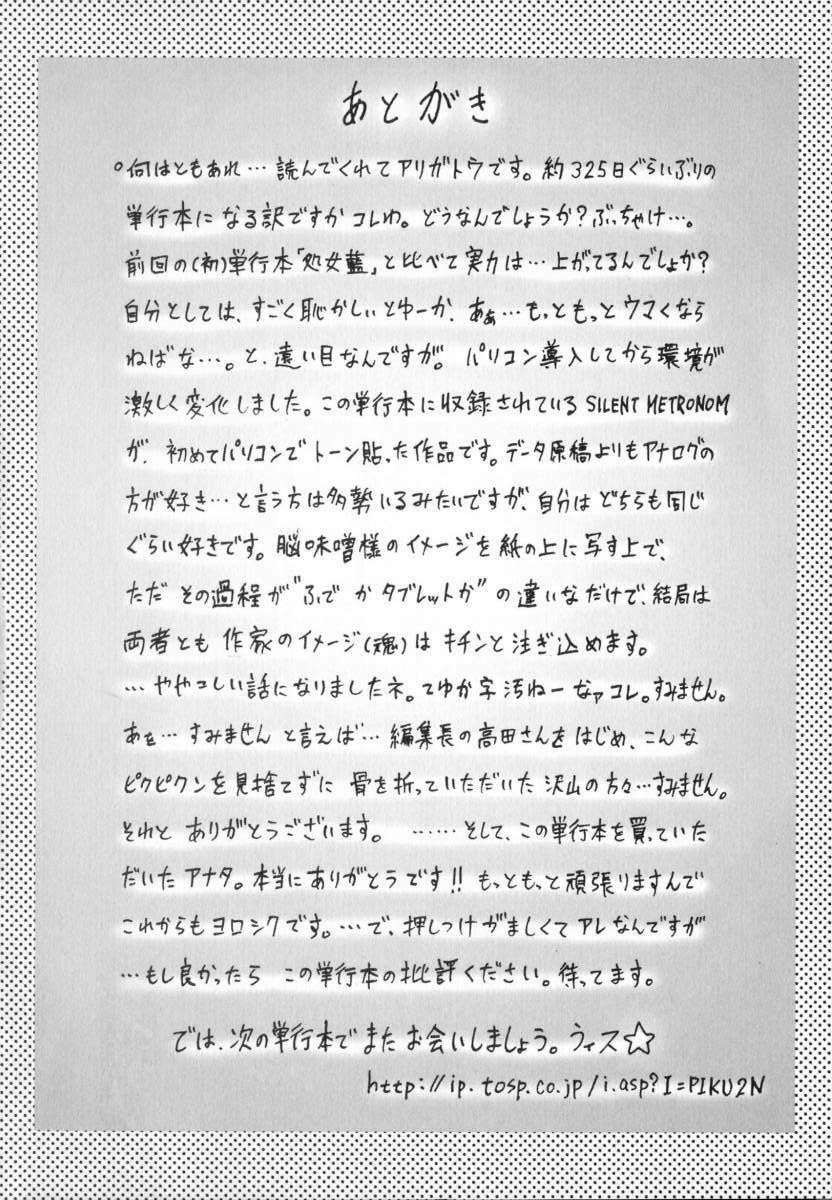 あとがき
○何はともあれ…読んでくれてアリガトウです。約325日ぐらいぶりの
単行本になる訳ですかコレわ。どうなんでしょうか?ぶっちゃけ…。
前回の(初)単行本「処女藍」と比べて実力は…上がってるんでしょか?
自分としては、すごく恥かしいとゆーか、あぁ…もっともっとウマくなら
ねばな…。と、遠い目なんですが。パソコン導入してから環境が
激しく変化しました。この単行本に収録されているSILENT METRONOM
が、初めてパソコンでトーン貼った作品です。データ原稿よりもアナログの
方が好き…と言う方は多勢いるみたいですが、自分はどちらも同じ
ぐらい好きです。脳味噌様のイメージを紙の上に写す上で、
ただ その過程が"ふでかタブレットか"の違いなだけで、結局は
両者とも 作家のイメージ(魂)は キチンと注ぎ込めます。
…ややこしい話になりましたネ。てゆか字汚ねーなァコレ。すみません。
あぁ…すみませんと言えば…編集長の高田さんをはじめ、こんな
ピクピクンを見捨てずに 骨を折っていただいた 沢山の方々…すみません。
それと ありがとうございます。 ……そして、この単行本を買っていた
だいたアナタ。本当にありがとうです!! もっともっと頑張りますんで
これからもヨロシクです。…で、押しつけがましくてアレなんですが
…もし良かったら この単行本の批評ください。待ってます。
では、次の単行本でまたお会いしましょう。うィス☆
http://ip.tosp.co.jp/i.asp?I=PIKU2N